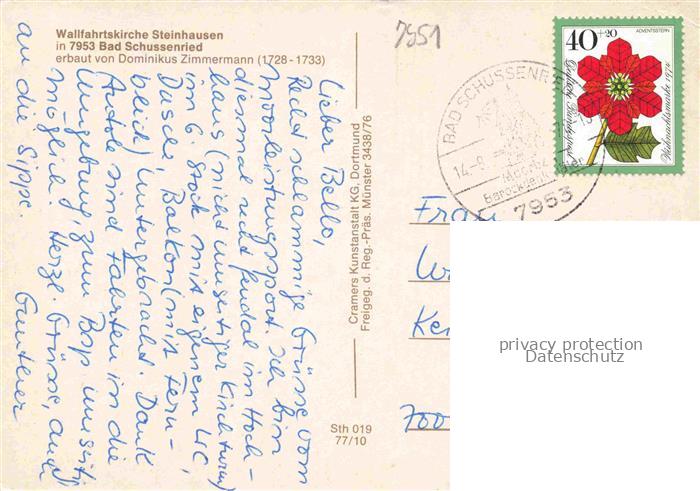 Wallfahrtskirche Steinhausen
in 7953 Bad Schussenried
erbaut von Dominikus Zimmermann (1728-1733)
7951
Lieber Bello,
Recht schlammige Grüsse vom
Moorleistungssport. Ich bin
diesmal recht feudal im Hoch-
haus (nicht umseitiger Kirchturm)
im 6. Stock mit eigenem WC,
Dusche, Balkon (mit Fern-
blick) untergebracht. Dank
Auto sind Fahrten in die
Umgebung, zum Bsp umseitig
möglich. Herzl. Grüsse, auch
an die Sippe.
Gunther
Cramers Kunstanstalt KG, Dortmund
Freigeg. d. Reg.-Präs. Münster 3438/76
Sth 019
77/10
40+20
ADVENTSSTERN
Deutsche Bundespost
Weihnachtsmarke 1974
BAD SCHUSSENR
14.-8.
7953
Frau
W
Ke
700
privacy protection
Datenschutz